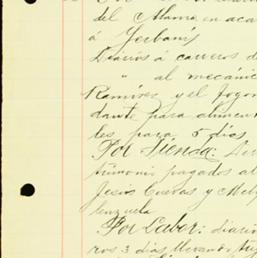 del Alamo en aca
á Gerbanis
Diarios á carreros d
" al mecánic
Ramirez y el fogon
dante para alimen
les para 5 días
Por Tienda:
trimonio pagados al
Jesús Cuevas y Mel
lenzuela
Por Labor: diario
ros 3 días llevando